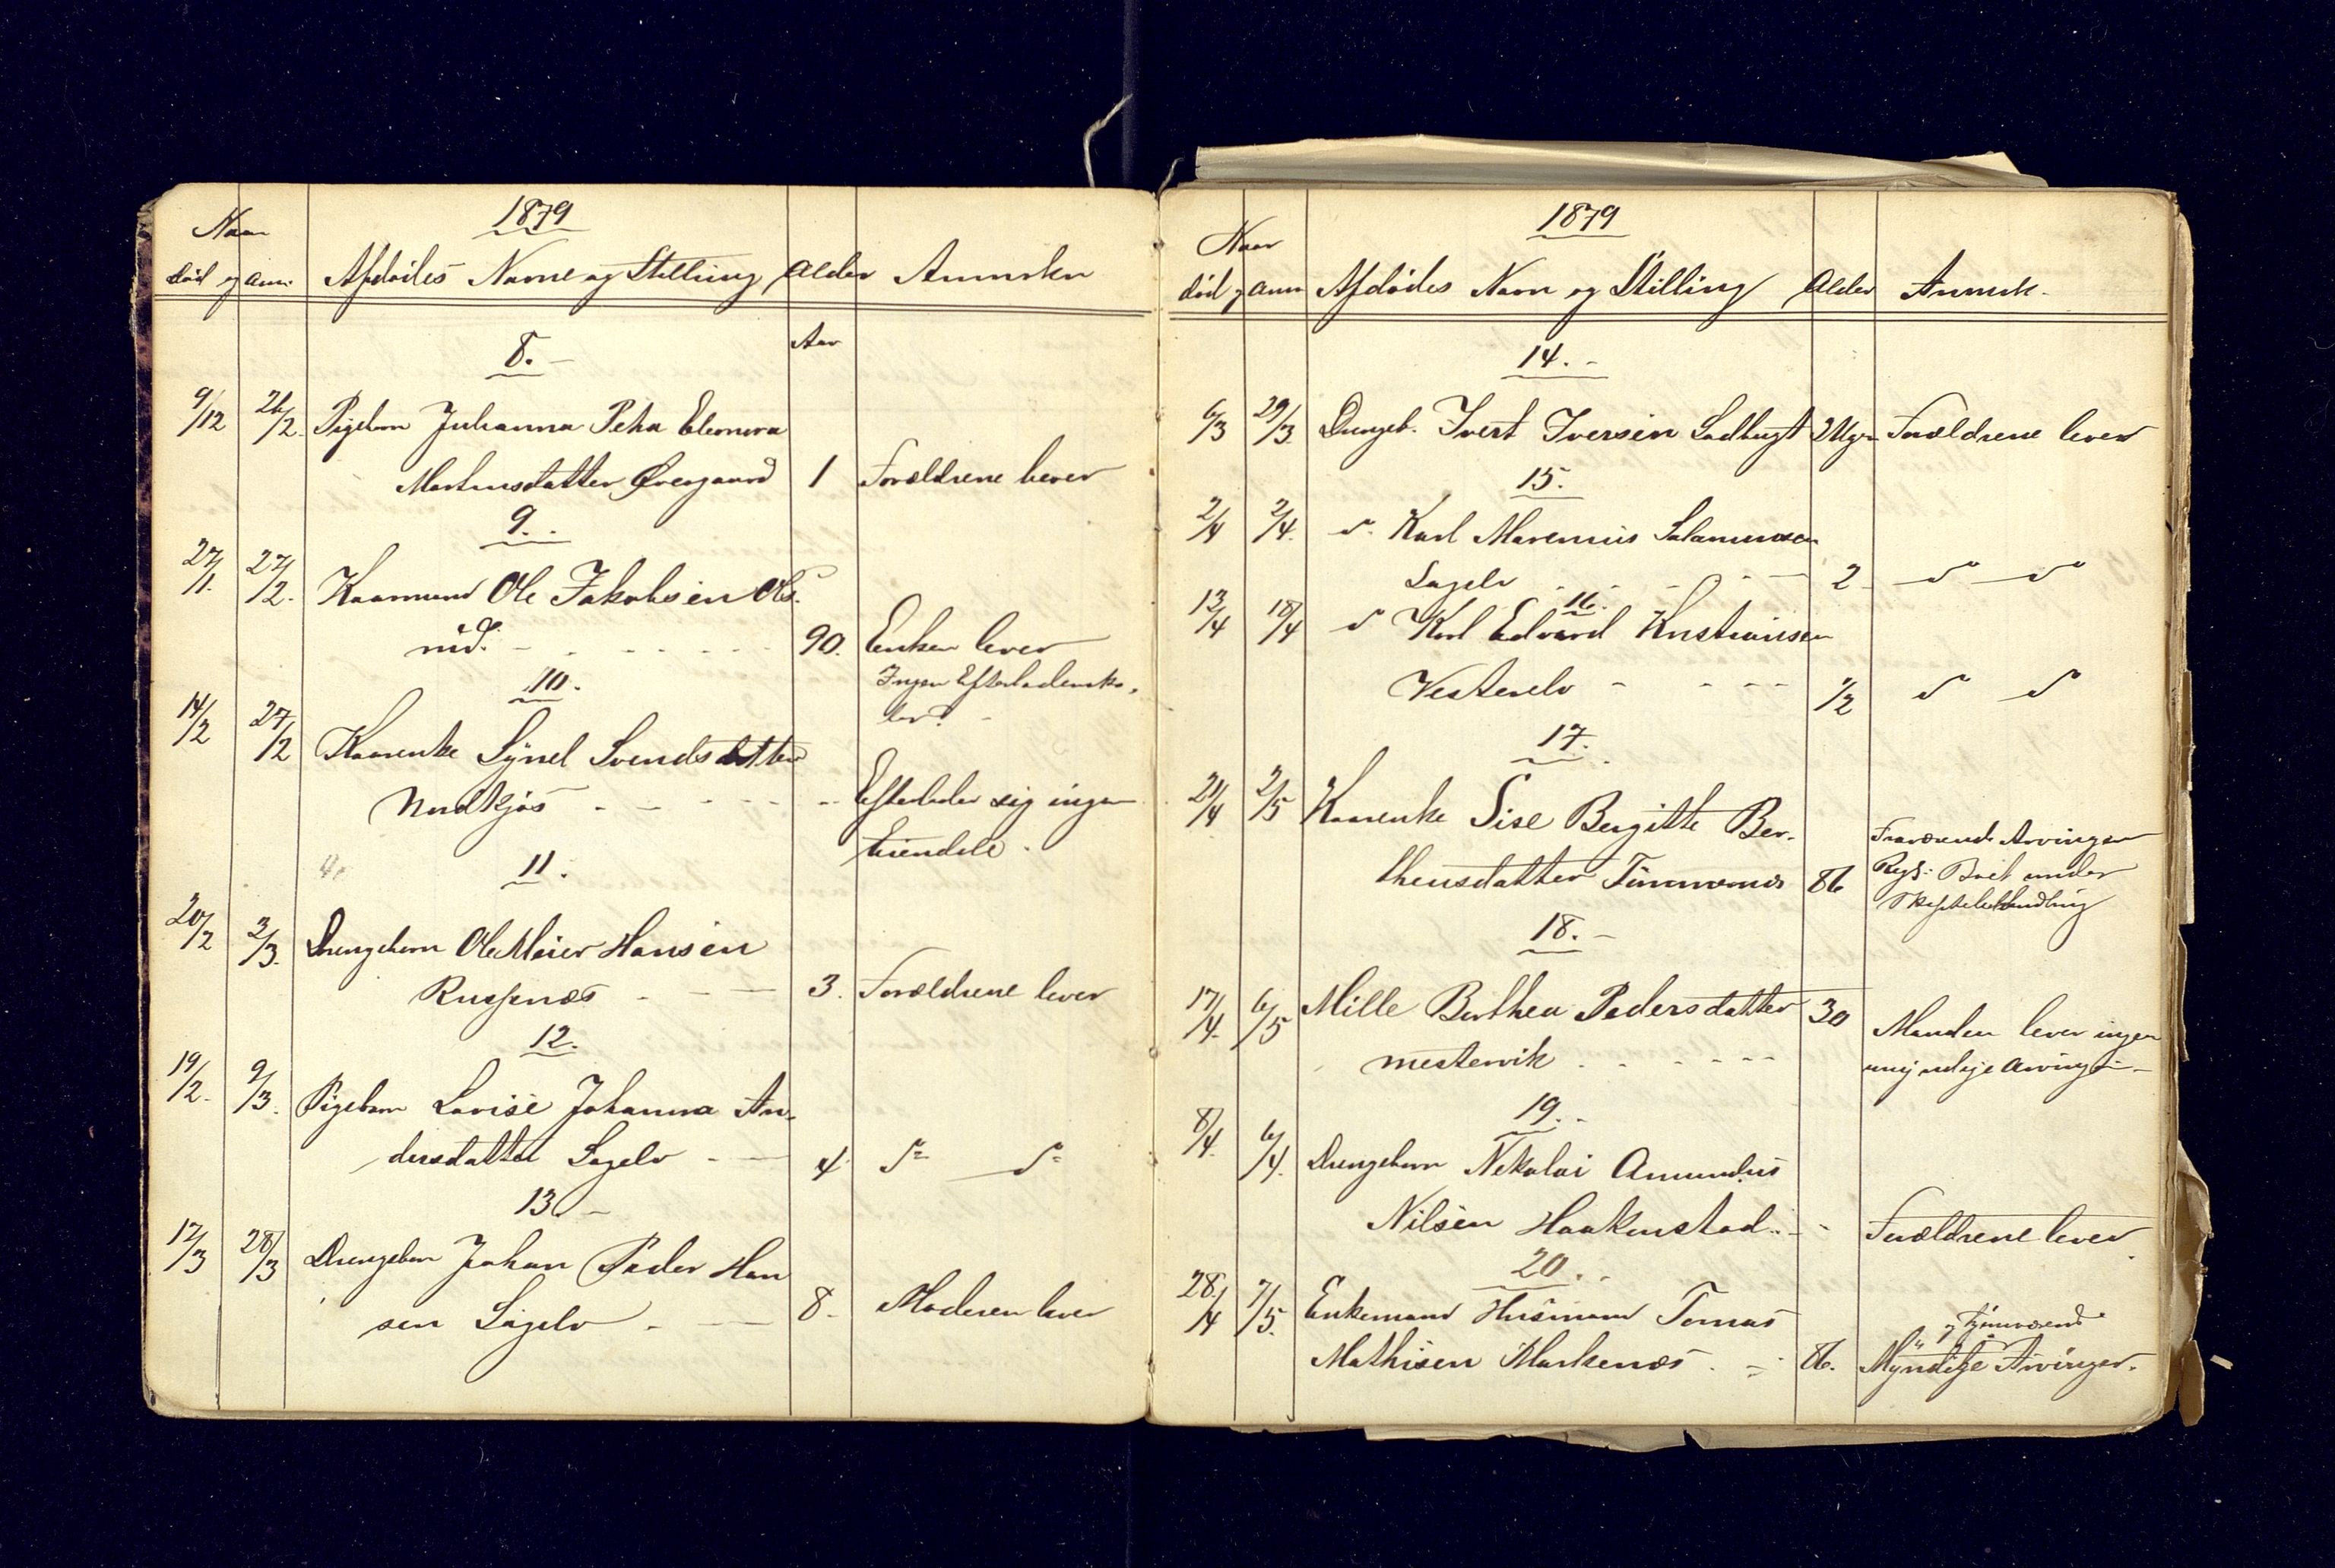 1879
Naar
død og anm. Afdødes Navne og Stilling Alder Anmrkn
Aar
8.
9/12 26/2 Pigebarn Johanna Petra Elenora
Martinsdatter Øvergaard 1 Forældrene lever
9.
27/1. 27/2. Kaarmand Ole Jakobsen Ols-
rud. 90. Enken lever
Ingen Efterladenska-
ber?
10.
14/2 27/2 Kaarenke Synel Svendsdatter
Nordkjos Efterlader sig ingen
Eiendele.
11.
20/2 2/3. Drengebarn Ole Meier Hansen
Russenæs 3. Forældrene lever
12.
19/2. 9/3. Pigebarn Lovise Johanna An-
dersdatter Sagelv 4 d= d=
13
12/3 28/3 Drengebarn Johan Peder Han
sen Sagelv 8. Moderen lever
1879
Naar
død og anm Afdødes Navn og Stilling Alder Anmrk.
14.
6/3 29/3. Drengeb. Ivert Iversen Sadbugt 2 Uger Forældrene lever
15.
2/4 2/4. d. Karl Marenius Salamonsen
Sagelv 2 d d
16.
13/4 18/4 d Karl Edvard Kristiansen
Vesterelv 1/2 d d
17.
21/4 2/5 Kaarenke Sise Bergitte Ber-
theusdatter 86 Fraværende Arvinger
Regs: Boet under
Skiftebehandling
18.
17/4. 6/5 Mille Berthea Pedersdatter 30 Manden lever ingen
mestervik umyndige Arvinger
19.
8/4. 6/4. Drengebarn Nekolai Amundus
Nilsen Haakenstad Forældrene lever
20.
28/4 7/5. Enkemand Husmand Tomas
og hjemværende
Mathisen Markenæs 86. Myndige Arvinger.